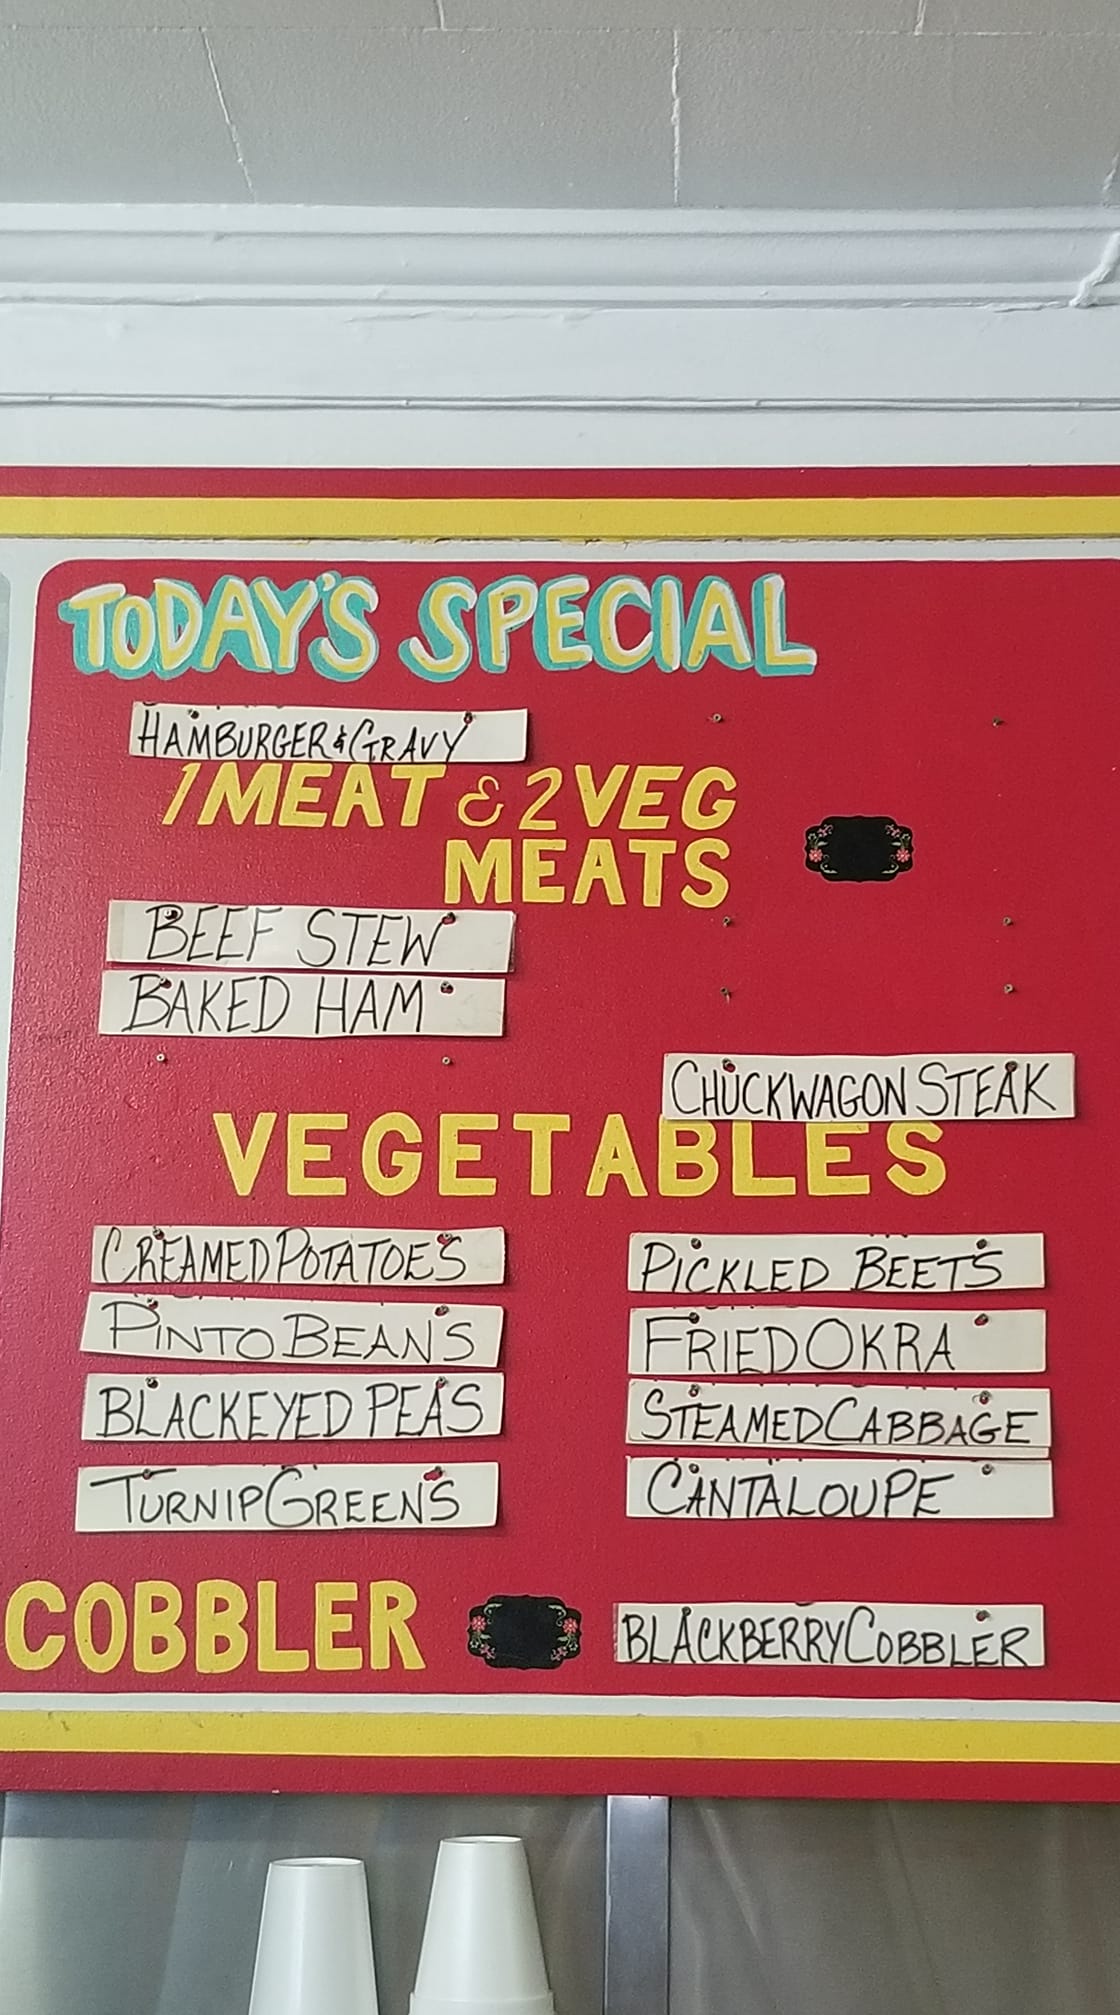 TODAY'S SPECIAL
HAMBURGER & GRAVY
1 MEAT & 2 VEG
MEATS
BEEF STEW
BAKED HAM
CHUCKWAGON STEAK
VEGETABLES
CREAMED POTATOES
PICKLED BEETS
PINTO BEANS
FRIED OKRA
BLACKEYED PEAS
STEAMED CABBAGE
TURNIP GREENS
CANTALOUPE
COBBLER
BLACKBERRY COBBLER